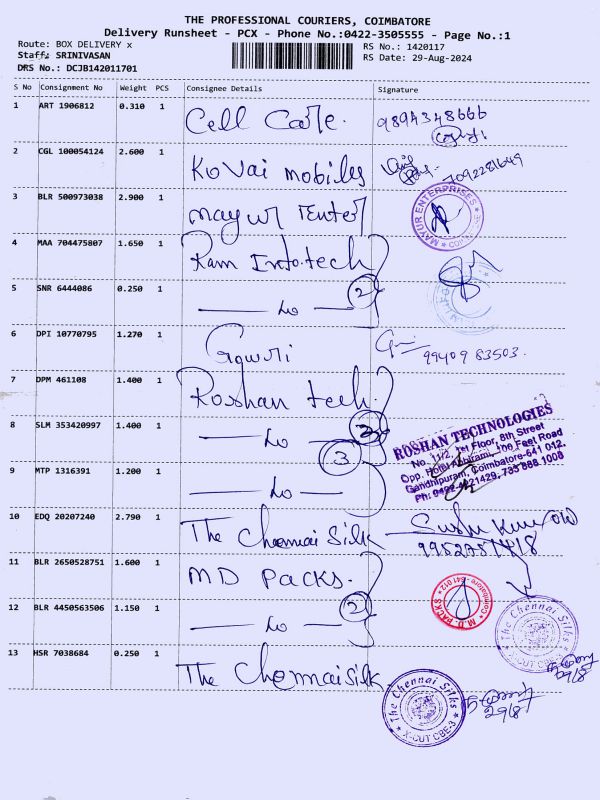 THE PROFESSIONAL COURIERS, COIMBATORE
Delivery Runsheet - PCX - Phone No.:0422-3505555 - Page No.:1
Route: BOX DELIVERY x
RS No.: 1420117
Staff: SRINIVASAN
RS Date: 29-Aug-2024
DRS No.: DCJB142011701
S No Consignment No Weight PCS Consignee Details Signature
1 ART 1906812 0.310 1 Cell Care. 9894348666
2 CGL 100054124 2.600 1 Kovai mobiles 7092281649
3 BLR 500973038 2.900 1 mayur Enter MAYUR ENTERPRISES
4 MAA 704475807 1.650 1 Ram Info.tech
5 SNR 6444086 0.250 1 — Do — 2
6 DPI 10770795 1.270 1 Gowri 99409 83503.
7 DPM 461108 1.400 1 Roshan tech.
8 SLM 353420997 1.400 1 — Do — 3
ROSHAN TECHNOLOGIES
No. 11/2, 1st Floor, 8th Street
Opp. Hotel Abhirami, 100 Feet Road
Gandhipuram, Coimbatore-641 012.
Ph: 0422-4321429, 735 868 1008
9 MTP 1316391 1.200 1 — Do —
10 EDQ 20207240 2.790 1 The Chennai Silk
11 BLR 2650528751 1.600 1 MD Packs.
M.D. PACKS Coimbatore 641 012
12 BLR 4450563506 1.150 1 — Do — 2
The Chennai Silks X-CUT CBE-3
29/8
13 HSR 7038684 0.250 1 The Chennai silk
The Chennai Silks X-CUT CBE-3
29/8